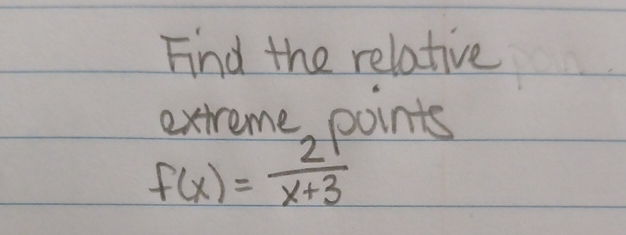 Find the relative
extreme points
f(x) = 2/(x+3)